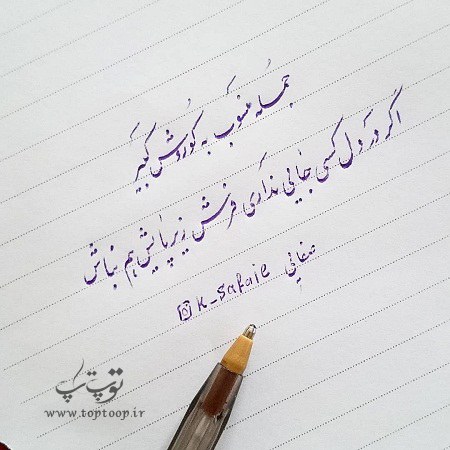 جمله منسوب به کوروش کبیر
اگر در دل کسی جایی نداری فرش زیر پایش هم نباش
صفایی
k_safaie
توپ تاپ
www.toptoop.ir